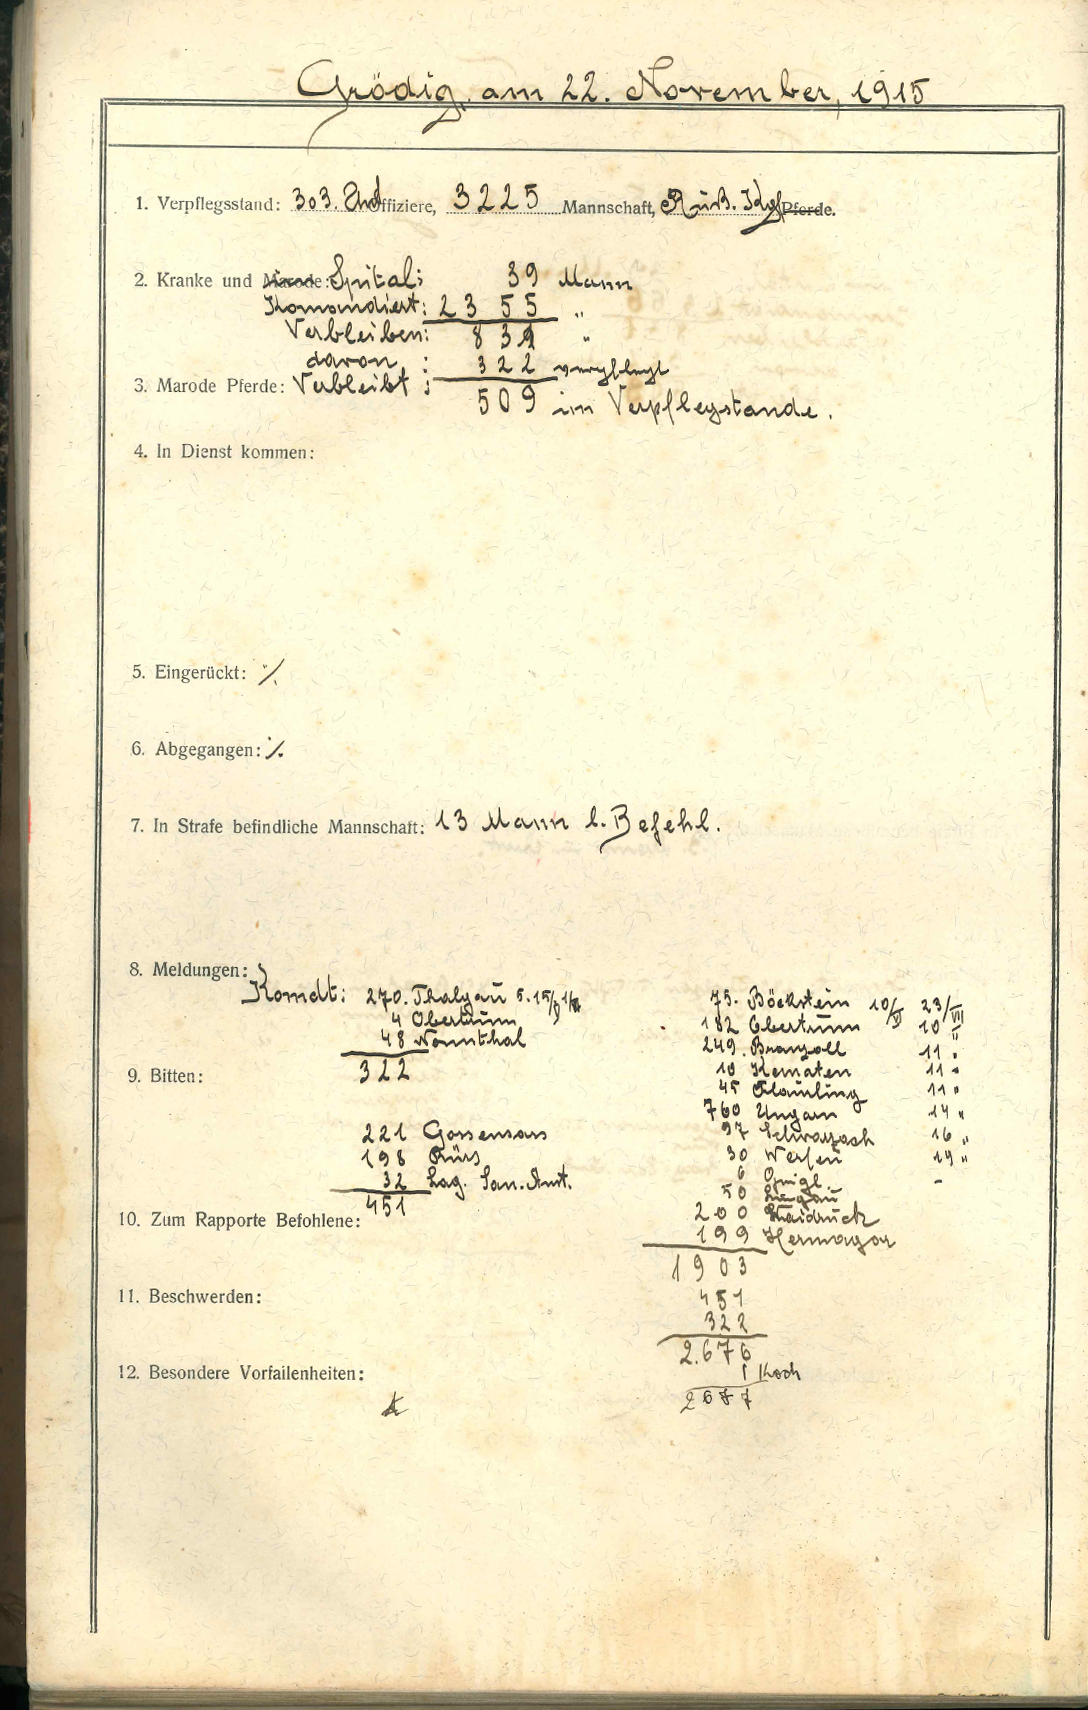 Grödig, am 22. November, 1915
1. Verpflegsstand: 303. Und Offiziere, 3225 Mannschaft, Ruß. Kgf Pferde.
2. Kranke und Marode: Spital: 39 Mann
Komandiert: 2355 "
Verbleiben: 831 "
davon : 322 verpflegt
3. Marode Pferde: Verbleibt : 509 im Verpflegstande.
4. In Dienst kommen:
5. Eingerückt: ·/.
6. Abgegangen: ·/.
7. In Strafe befindliche Mannschaft: 13 Mann l. Befehl.
8. Meldungen:
Komdt: 270. Thalgau
4 Obertrum
48
322
9. Bitten:
221
198
32 Lag. San. Amt.
451
75. Böckstein 10/V 23/VIII
182 Obertrum 10 "
249. Branzoll 11 "
10 Kematen 11 "
45 11 "
760 Ungarn 14 "
97 Schwarzach 16 "
30 Werfen 19 "
6 Gnigl. -
50 Lungau
200
199 Hermagor
1903
451
322
2.676
1 Koch
2677
10. Zum Rapporte Befohlene:
11. Beschwerden:
12. Besondere Vorfallenheiten: